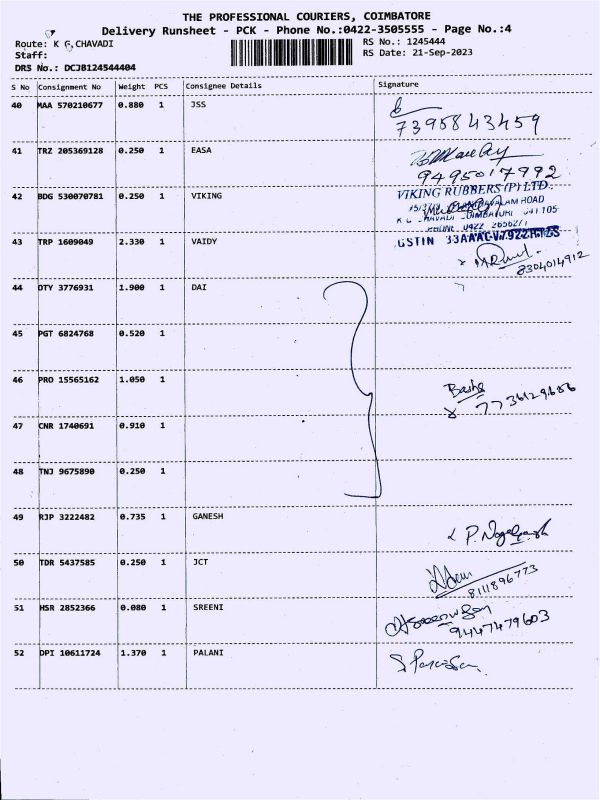 THE PROFESSIONAL COURIERS, COIMBATORE
Delivery Runsheet - PCK - Phone No.:0422-3505555 - Page No.:4
Route: K G CHAVADI
RS No.: 1245444
Staff:
RS Date: 21-Sep-2023
DRS No.: DCJB124544404
S No Consignment No Weight PCS Consignee Details Signature
40 MAA 570210677 0.880 1 JSS
7395843459
41 TRZ 205369128 0.250 1 EASA
9495017992
42 BDG 530070781 0.250 1 VIKING
VIKING RUBBERS (P) LTD.
ROAD
PHONE 0422
43 TRP 1609049 2.330 1 VAIDY
GSTIN
8304014912
44 DTY 3776931 1.900 1 DAI
45 PGT 6824768 0.520 1
46 PRO 15565162 1.050 1
Basha
7736129686
47 CNR 1740691 0.910 1
48 TNJ 9675890 0.250 1
49 RJP 3222482 0.735 1 GANESH
50 TDR 5437585 0.250 1 JCT
8111896773
51 HSR 2852366 0.080 1 SREENI
9447479603
52 DPI 10611724 1.370 1 PALANI